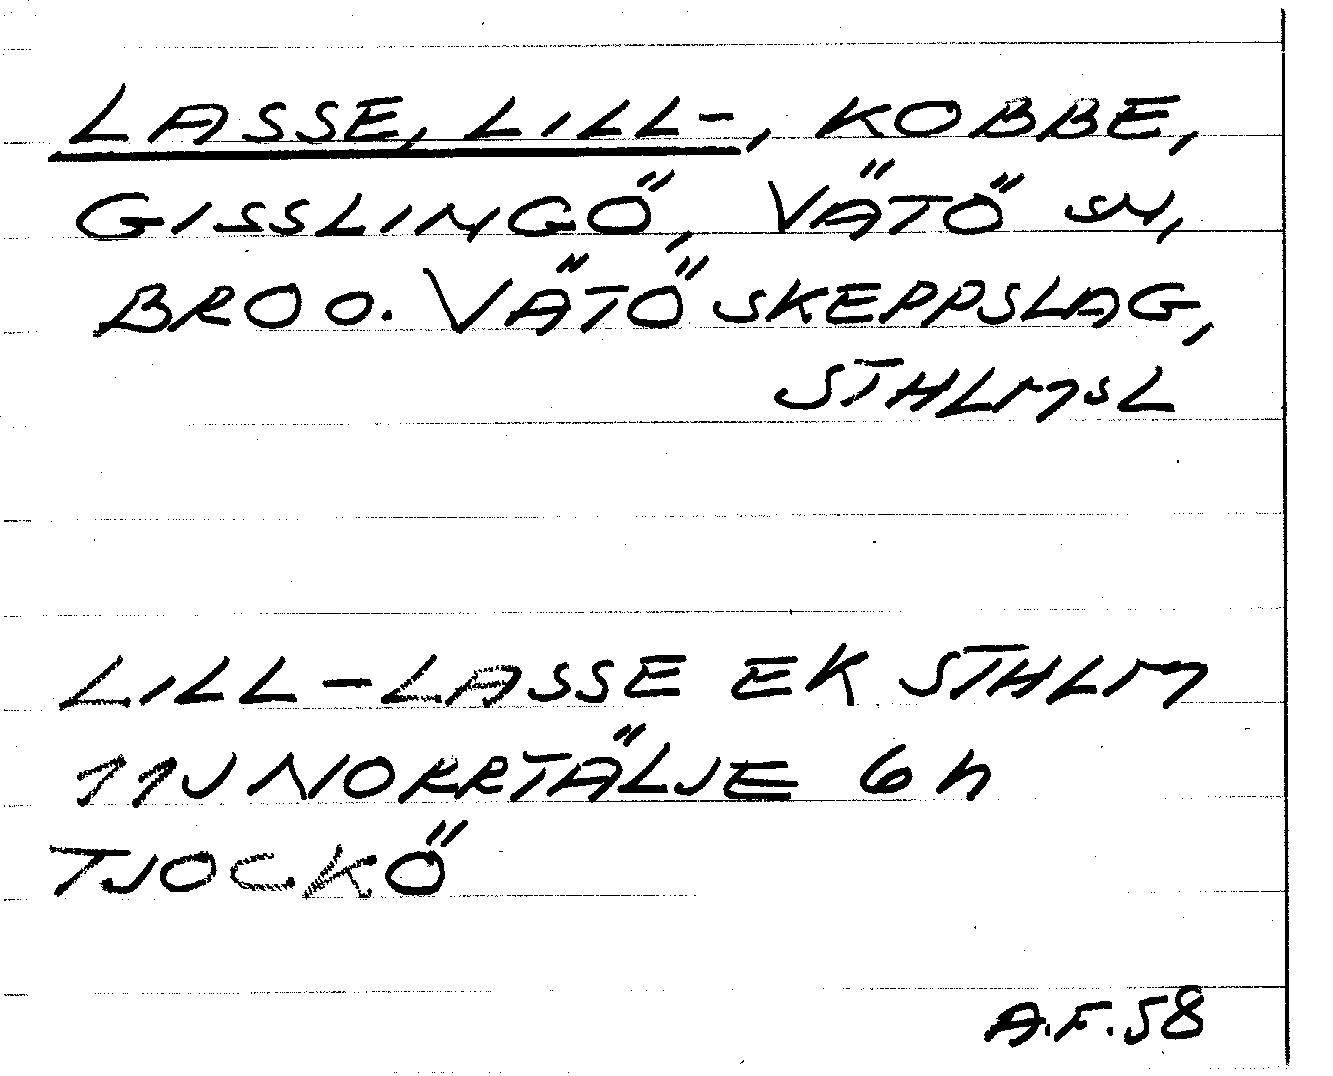 LASSE, LILL-, KOBBE,
GISSLINGÖ, VÄTÖ SN,
BRO O. VÄTÖ SKEPPSLAG,
STHLMSL
LILL-LASSE EK STHLM
11J NORRTÄLJE 6h
TJOCKÖ
A.F.58